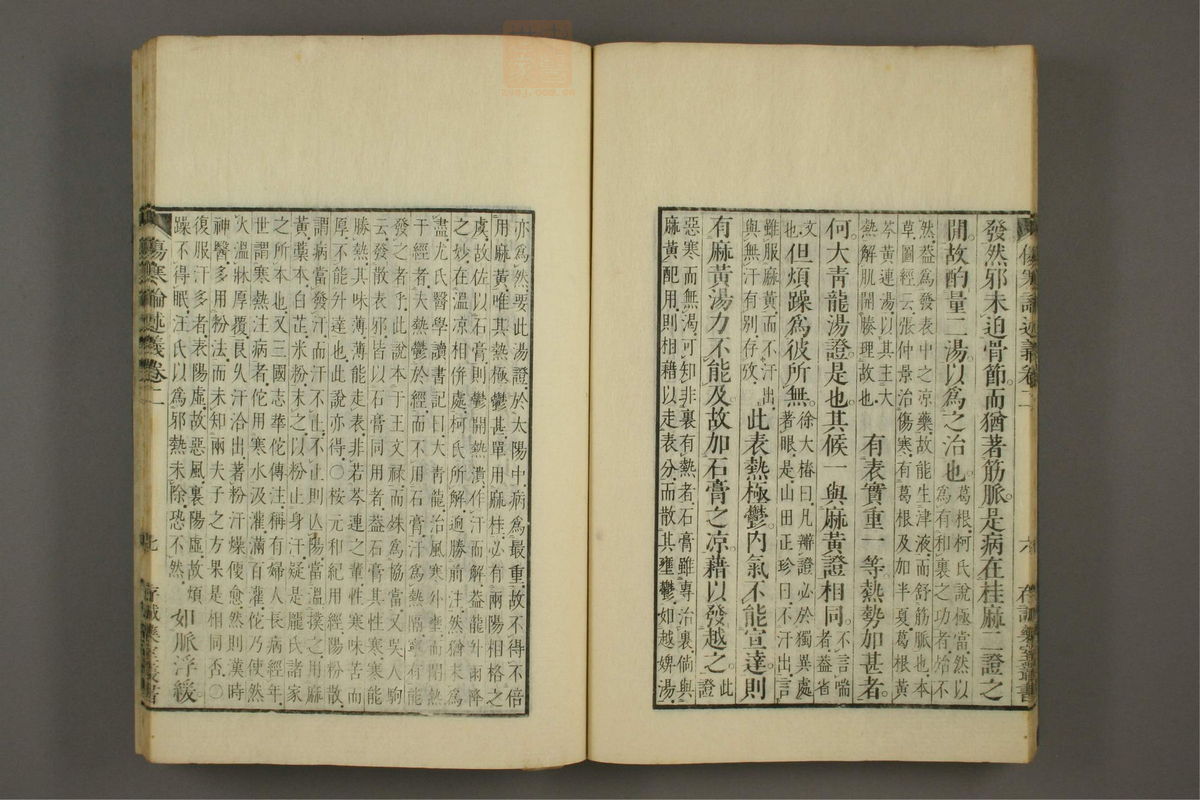 發然邪未迫骨節而猶著筋脈是病在桂麻二證之
開故酌量二湯以爲之治也葛根柯氏說極當然以
爲有和裏之功者殆不
然葢爲發表中之涼藥故能生津液而舒筋脈也本
草圖經云張仲景治傷寒有葛根及加半夏葛根黃
芩黃連湯以其主大
熱解肌開腠理故也有表實重一等熱勢加甚者
何大青龍湯證是也其候一與麻黃證相同不言喘
者葢省
文
也但煩躁爲彼所無徐大椿曰凡辨證必於獨異處
著眼是山田正珍曰不汗出言
雖服麻黃而不汗出
與無汗有別存攷此表熱極鬱內氣不能宣達則
有麻黃湯力不能及故加石膏之涼藉以發越之此
證
惡寒而無渴可知非裏有熱者石膏雖專治裏倘與
麻黃配用則相藉以走表分而散其壅鬱如越婢湯
傷寒論述義卷二
六
存誠藥室叢書
亦爲然要此湯證於太陽中病爲最重故不得不倍
用麻黃唯其熱鬱甚單用麻桂必有兩陽相格之
虞故佐以石膏則熱鬱開潰作汗而解葢龍升雨降
之妙在溫涼相併處柯氏所解逈勝前注然猶未爲
盡尤氏醫學讀書記曰大青龍治風寒外壅而閉熱
于經者夫熱鬱於經而不用石膏汗爲熱隔寧有能
發之者乎此說本于王文祿而殊爲協當又吳人駒
云發散表邪皆以石膏同用者葢石膏其性寒寒能
勝熱其味薄薄能走表非若芩連之輩性寒味苦而
厚不能升達也此說亦得○桉元和紀用經陽粉散
謂病當發汗而汗不止不止則亾陽當溫撲之用麻
黃藁本白芷米粉末之以粉止身汗疑是龐氏諸家
之所本也又三國志華佗傳注稱有婦人長病經年
世謂寒熱注病者佗用寒水汲灌滿百灌佗乃使然
火溫牀厚覆良久汗洽出著粉汗燥便愈然則漢時
神醫多用粉法而未知兩夫子之方果是相同否○
復服汗多者表陽虛故惡風裏陽虛故煩
躁不得眠汪氏以爲邪熱未除恐不然如脈浮緩
傷寒論述義卷二
七
存誠藥室叢書